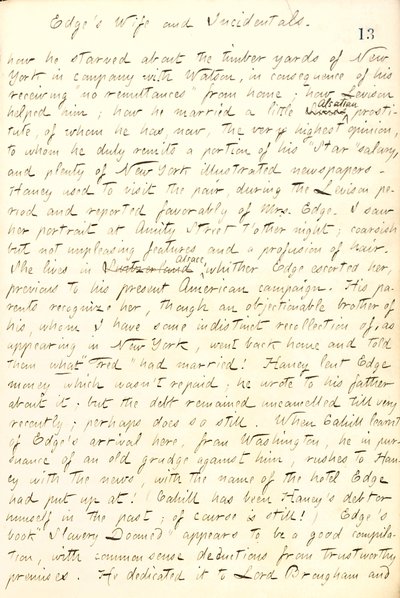 Edge's Wife and Incidentals.
13
how he starved about the timber yards of New
York in company with Watson, in consequence of his
receiving "no remittances" from home; how Levison
helped him; how he married a little Alsatian prosti-
tute, of whom he has, now, the very highest opinion,
to whom he duly remits a portion of his "Star" salary,
and plenty of New York illustrated newspapers.
Haney used to visit the pair, during the Levison pe-
riod and reported favorably of Mrs. Edge. I saw
her portrait at Amity Street t'other night; coarsish
but not unpleasing features and a profusion of hair.
She lives in Switzerland Alsace, whither Edge escorted her,
previous to his present American campaign. His pa-
rents recognize her, though an objectionable brother of
his, whom I have some indistinct recollection of, as
appearing in New York, went back home and told
them what "Fred" had married! Haney lent Edge
money which wasn't repaid; he wrote to his father
about it, but the debt remained uncancelled till very
recently; perhaps does so still. When Cahill learnt
of Edge's arrival here, from Washington, he in pur-
suance of an old grudge against him, rushes to Han-
ey with the news, with the name of the hotel Edge
had put up at! (Cahill has been Haney's debtor
himself in the past; of course is still!) Edge's
book "Slavery Doomed" appears to be a good compila-
tion, with common sense deductions from trustworthy
premises. He dedicated it to Lord Brougham and